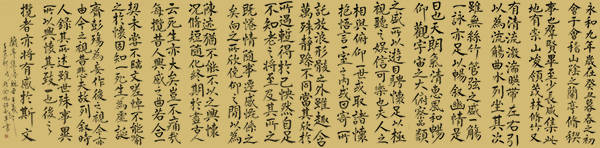 永和九年歲在癸丑暮春之初
會于會稽山陰之蘭亭脩稧
事也群賢畢至少長咸集此
地有崇山峻領茂林脩竹又
有清流激湍暎帶左右引
以為流觴曲水列坐其次
雖無絲竹管弦之盛一觴
一詠亦足以暢敘幽情是
日也天朗氣清惠風和暢
仰觀宇宙之大俯察品類
之盛所以遊目騁懷足以極
視聽之娛信可樂也夫人之
相與俯仰一世或取諸懷
抱悟言一室之內或因寄所
託放浪形骸之外雖趣舍
萬殊靜躁不同當其欣於
所遇暫得於己怏然自足
不知老之將至及其所之
既倦情隨事遷感慨係之
矣向之所欣俛仰之間以為
陳迹猶不能不以之興懷
況脩短隨化終期於盡古人
云死生亦大矣豈不痛哉
每覽昔人興感之由若合一
契未嘗不臨文嗟悼不能喻
之於懷固知一死生為虛誕
齊彭殤為妄作後之視今亦
由今之視昔悲夫故列敘時
人錄其所述雖世殊事異
所以興懷其致一也後之
攬者亦將有感於斯文